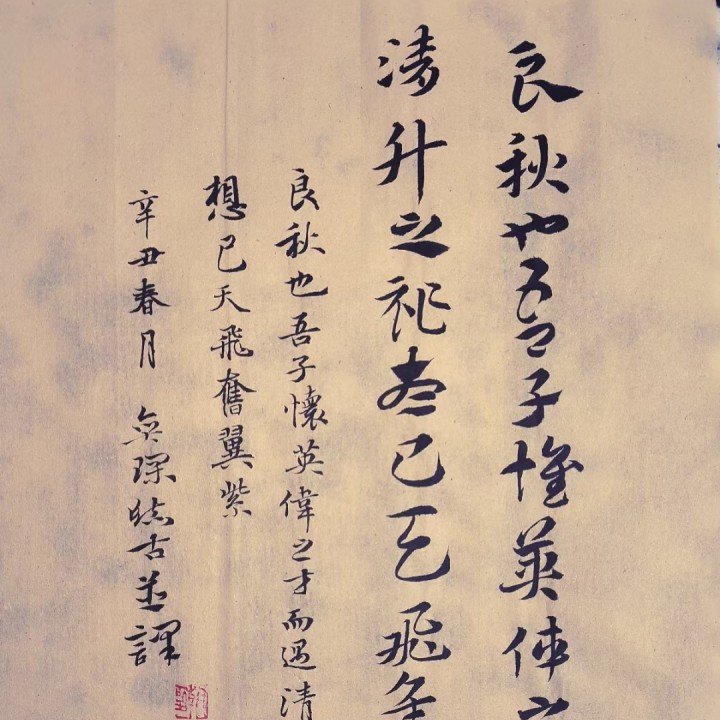 良秋也吾子懷英偉之
清升之祚想已天飛奮
良秋也吾子懷英偉之才而遇清
想已天飛奮翼紫
辛丑春月 臨古並譯